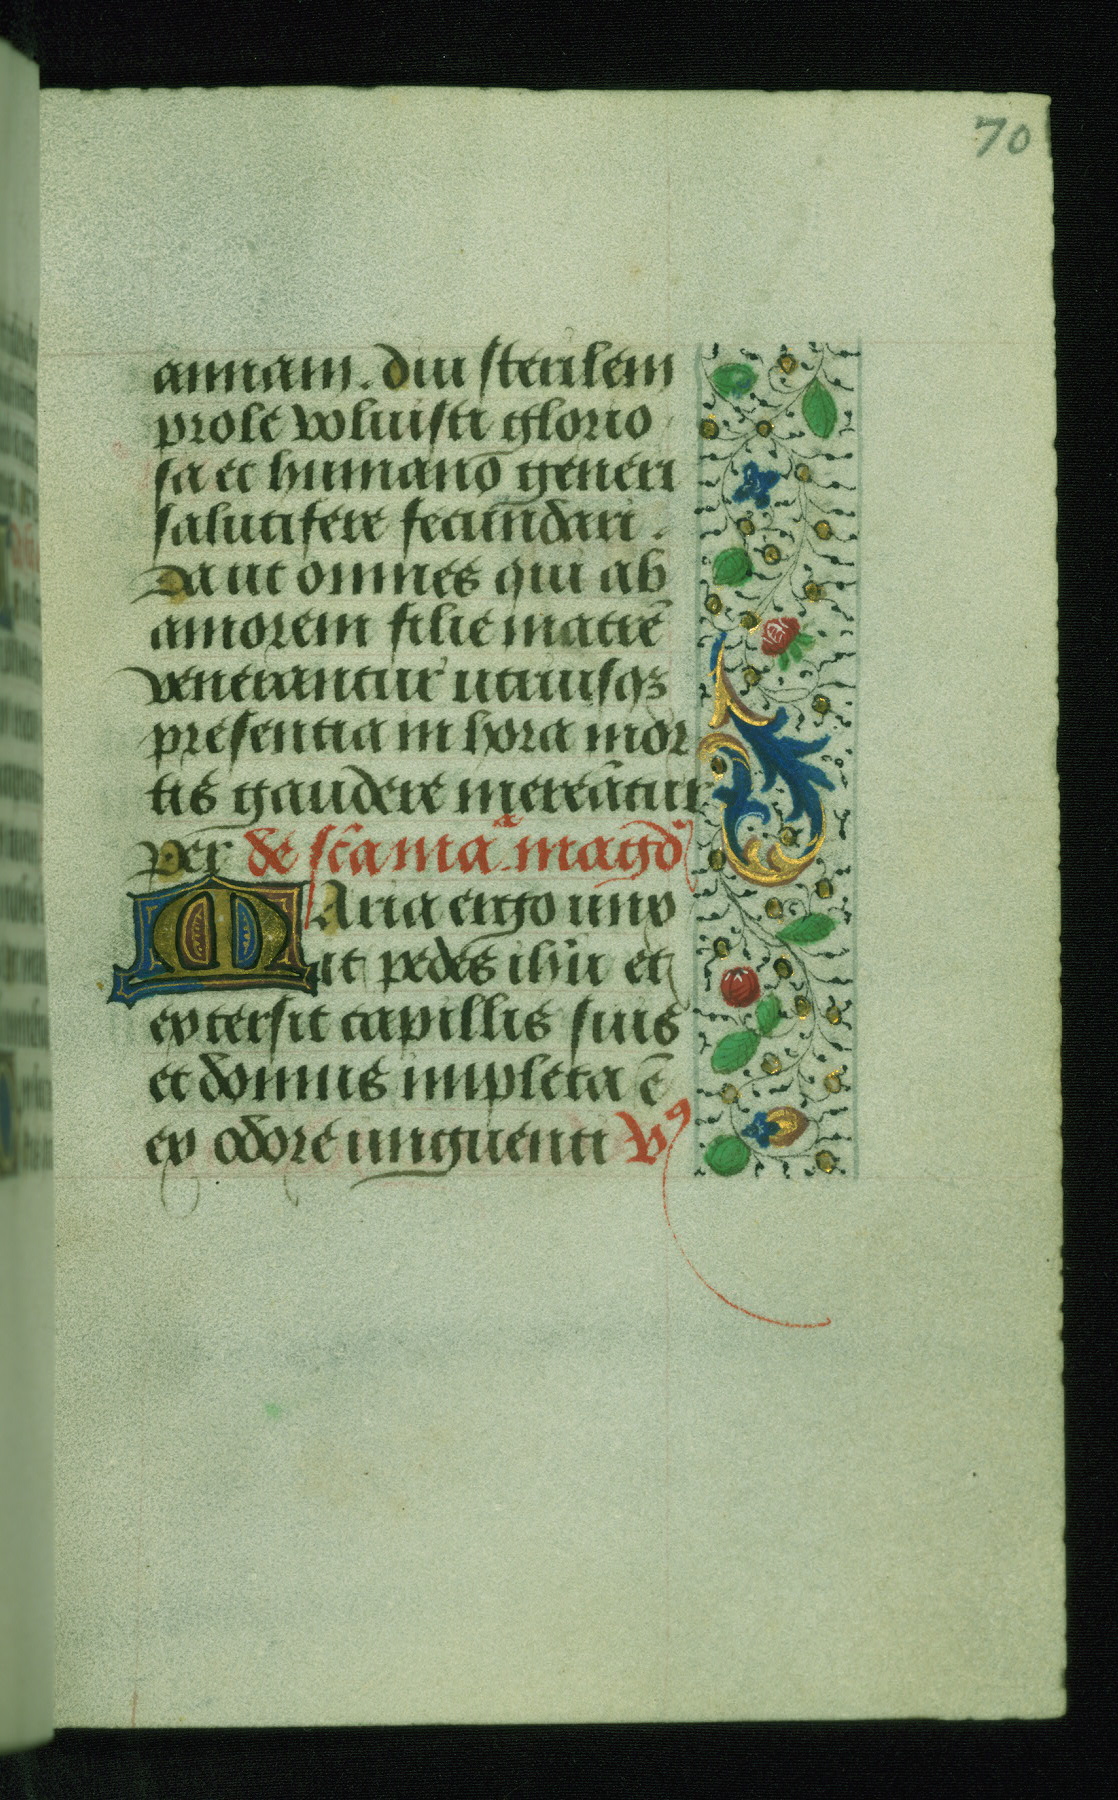 70
annam. diu sterilem
prole voluisti glorio
sa et humano generi
salutifere fecundari.
Da ut omnes qui ab
amorem filie matrē
venerantur utriusqꝫ
presentia in hora mor
tis gaudere mereātur
per de scā maria magd̄
Maria ergo unx
it pedes ihū et
extersit capillis suis
et domus impleta ē
ex odore unguenti Vꝰ